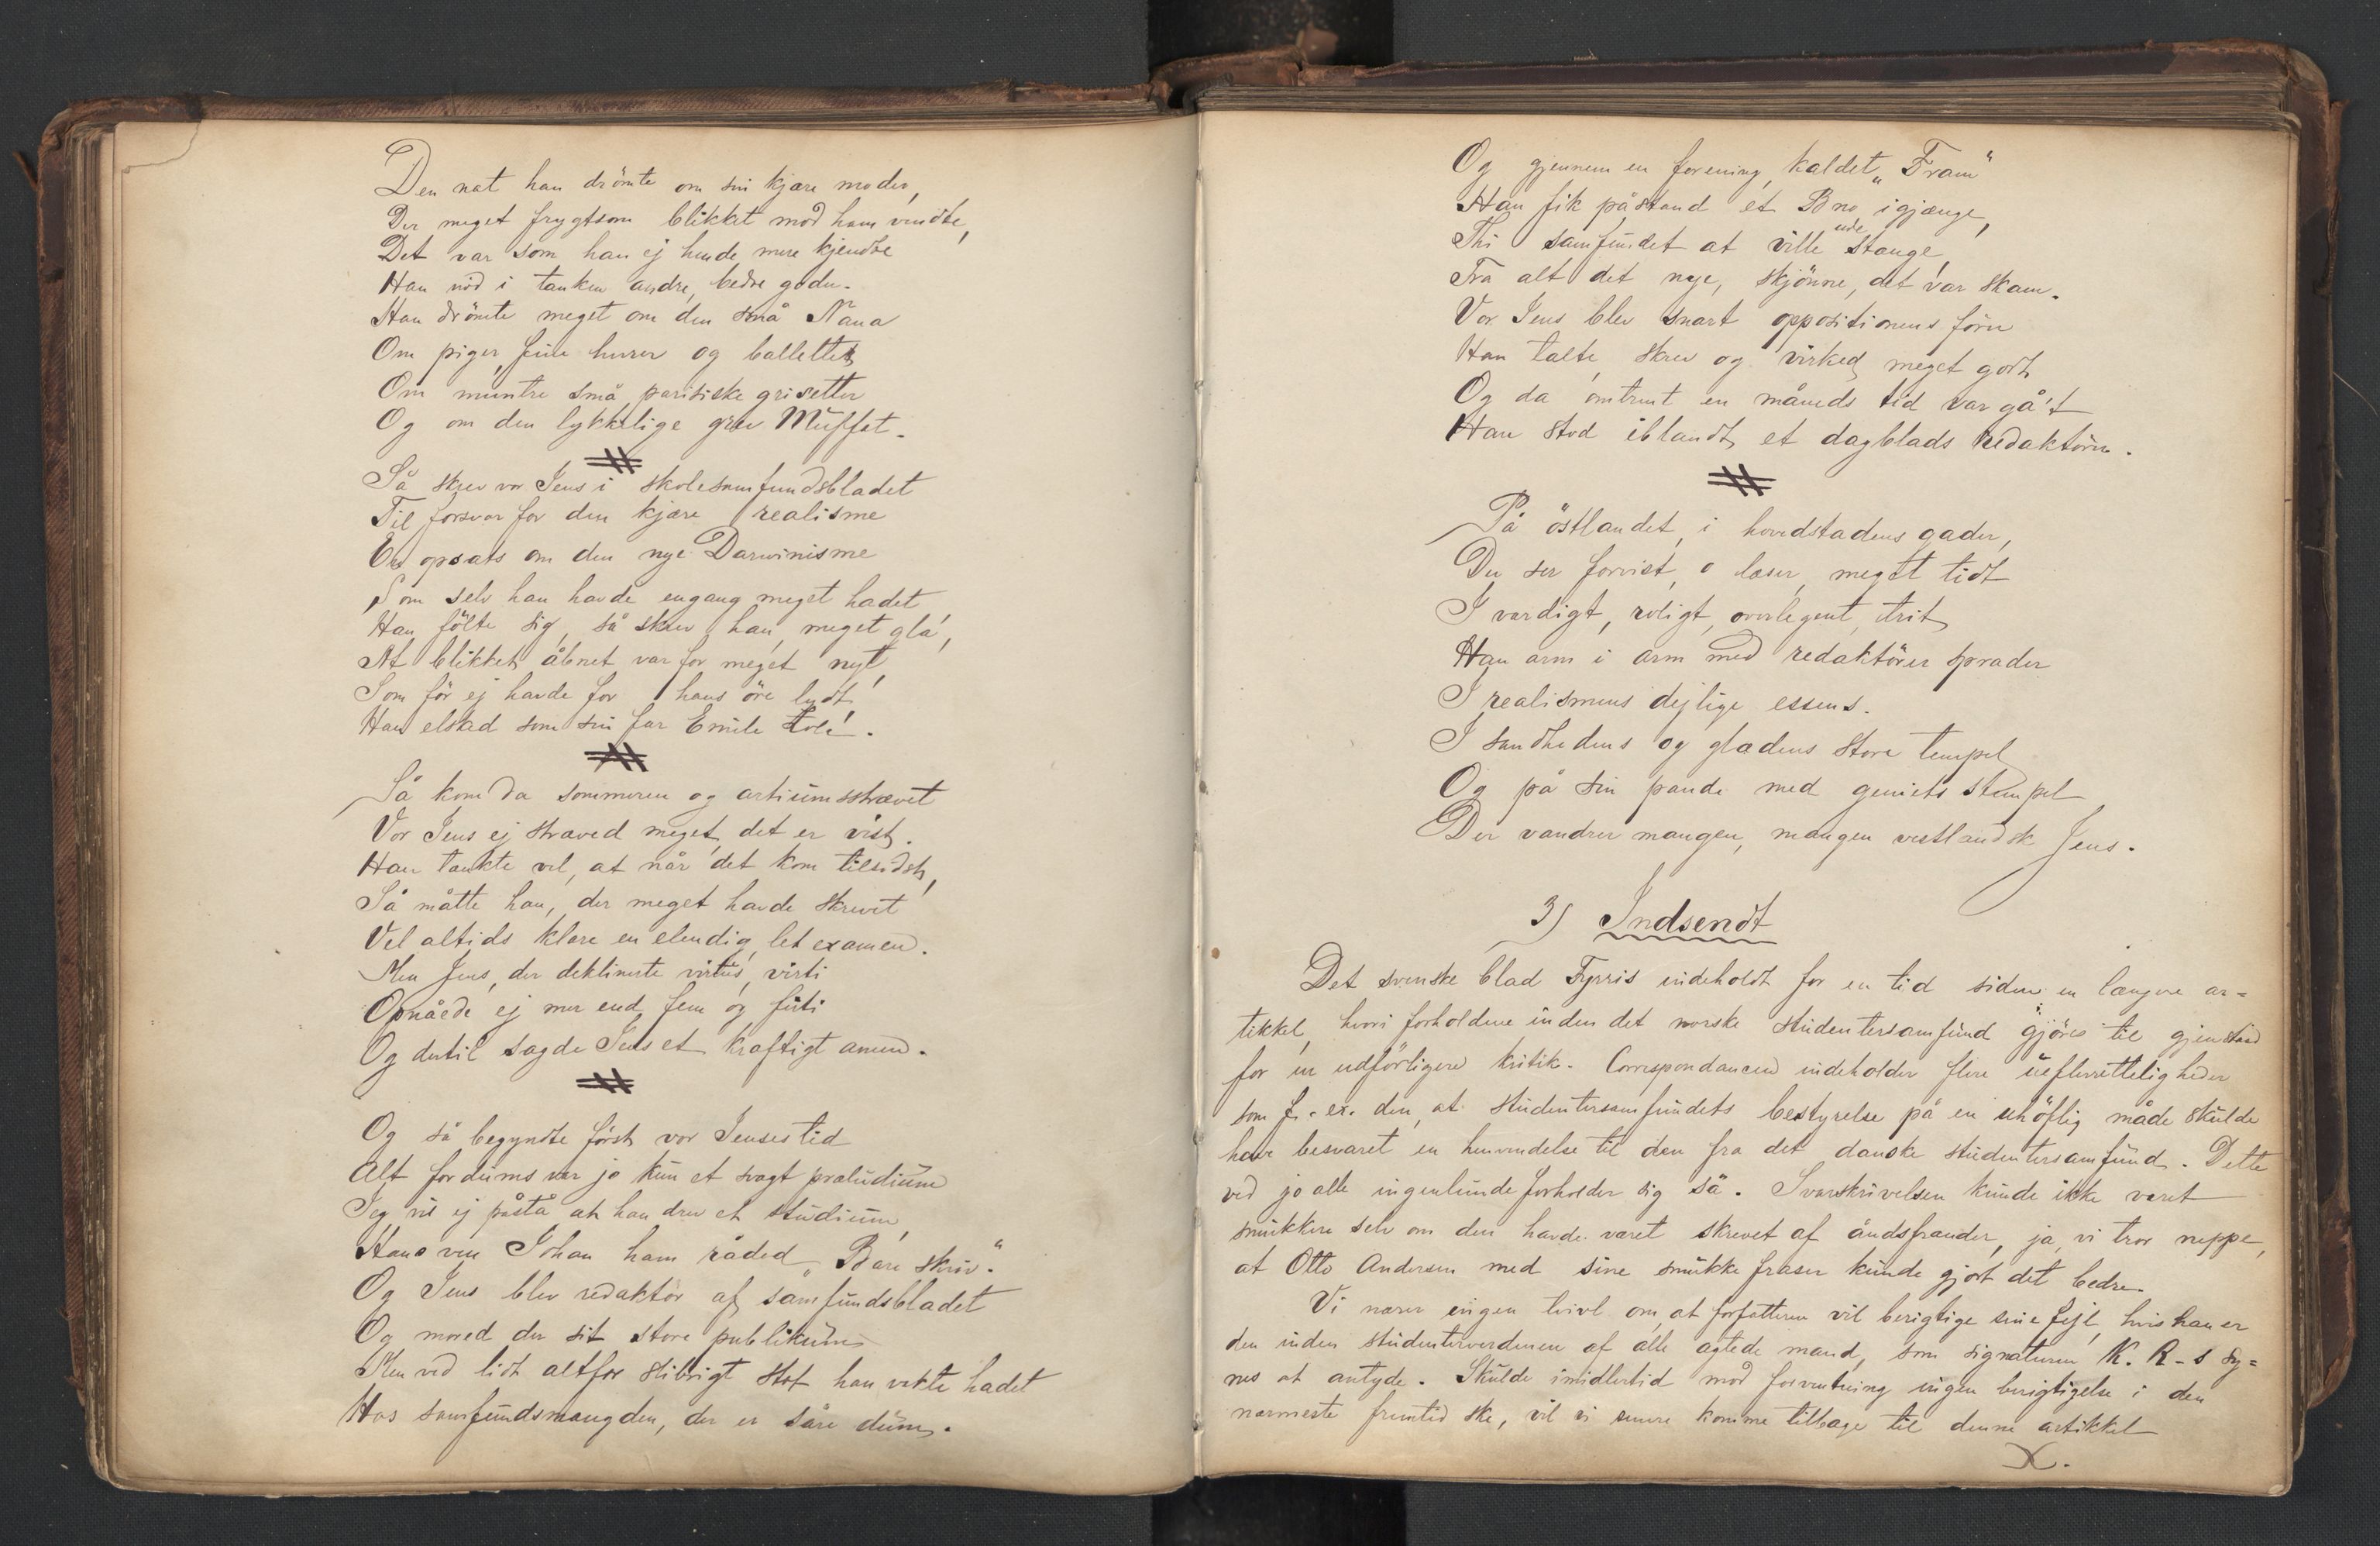 Den nat han drömte om sin kjære moder,
Der meget frygtsom blikket mod ham vendte,
Det var som han ej hende mere kjendte
Han nöd i tanken andre, bedre goder.
Han drömte meget om den små Nana
Om piger, fine hurer og balletter
Om muntre små, parisiske grisetter
Og om den lykkelige grev Muffat.
Så skrev vor Jens i skolesamfundsbladet
Til forsvar for den kjære realisme
En opsats om den nye Darwinisme
Som selv han havde engang meget hadet
Han fölte sig, så skrev han, meget gla',
At blikket åbnet var for meget nyt,
Som för ej havde for hans öre lydt,
Han elsked som sin far Emile Zola.
Så kom da sommeren og artiumsstrævet
Vor Jens ej stræved meget, det er vist.
Han tænkte vel, at når det kom tilsidst,
Så måtte han, der meget havde skrevet
Vel altids klare en elendig, let examen.
Men Jens, der deklinerte virtus, virti
Opnåede ej mer end fem og firti
Og dertil sagde Jens et kraftigt amen.
Og så begyndte först vor Jenses tid
Alt fordums var jo kun et svagt præludium
Jeg vil ej påstå at han drev et studium,
Hans ven Johan ham råded „Bare skriv."
Og Jens blev redaktör af samfundsbladet
Og mored der sit store publikum
Men ved lidt altfor slibrigt stof han vekte hadet
Hos samfundsmængden, der er såre dum.
Og gjennem en forening, kaldet „Fram"
Han fik påstand et Bno, igjænge,
Thi samfundet at ville ude stænge
Fra alt det nye, skjönne, det var skam.
Vor Jens blev snart oppositionens förer
Han talte, skrev og virked meget godt
Og da omtrent en måneds tid var gå't
Han stod iblandt et dagblads redaktörer.
På östlandet, i hovedstadens gader,
Du ser forvist, o læser, meget tidt
I værdigt, roligt, overlegent, skrit
Han arm i arm med redaktörer sprader
I realismens dejlige essens.
I sandhedens og glædens store tempel
Og på sin pande med geniets stempel
Der vandrer mangen, mangen vestlandsk Jens.
3) Indsendt
Det svenske blad Fyris indeholdt for en tid siden en længere ar=
tikkel, hvori forholdene inden det norske studentersamfund gjöres til gjenstand
for en udförligere kritik. Correspondancen indeholder flere uefterretteligheder
som f. ex. den, at studentersamfundets bestyrelse på en uhöflig måde skulde
have besvaret en henvendelse til den fra det danske studentersamfund. Dette
ved jo alle ingenlunde forholder sig så. Svarskrivelsen kunde ikke været
smukkere selv om den havde været skrevet af åndsfrænder, ja, vi tror neppe,
at Otto Andersen med sine smukke fraser kunde gjort det bedre.
Vi nærer ingen tvivl om, at forfatteren vil berigtige sine fejl, hvis han er
den inden studenterverdenen af alle agtede mand, som signaturen K. R-s sy=
nes at antyde. Skulde imidlertid mod forventning ingen berigtigelse i den
nærmeste fremtid ske, vil vi senere komme tilbage til denne artikkel
X.